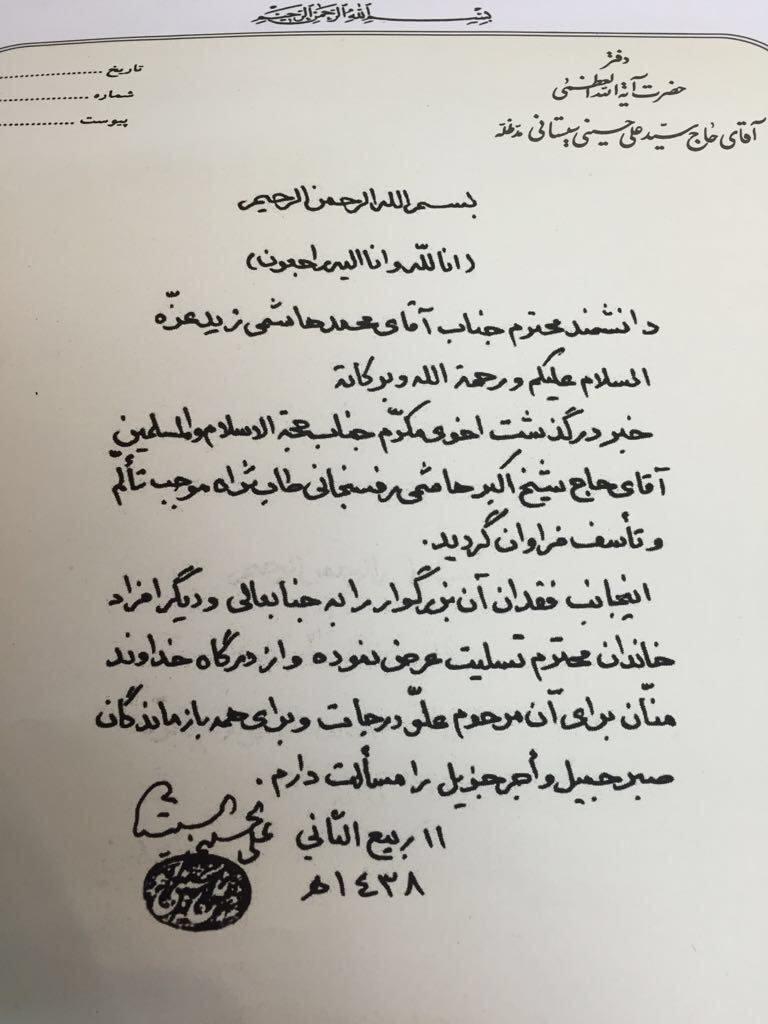 بسم الله الرحمن الرحیم
دفتر
حضرت آیة الله العظمی
آقای حاج سیّد علی حسینی سیستانی مدّظلّه
تاریخ
شماره
پیوست
بسم الله الرحمن الرحیم
(انا للّه وانا الیه راجعون)
دانشمند محترم جناب آقای محمد هاشمی زید عزّه
السلام علیکم ورحمة الله وبرکاته
خبر درگذشت اخوی مکرّم جناب حجة الاسلام والمسلمین
آقای حاج شیخ اکبر هاشمی رفسنجانی طاب ثراه موجب تألّم
و تأسف فراوان گردید.
اینجانب فقدان آن بزرگوار را به جنابعالی و دیگر افراد
خاندان محترم تسلیت عرض نموده و از درگاه خداوند
منّان برای آن مرحوم علوّ درجات و برای همه بازماندگان
صبر جمیل و أجر جزیل را مسألت دارم.
١١ ربیع الثّانی
١٤٣٨ هـ
علي الحسيني السيستاني